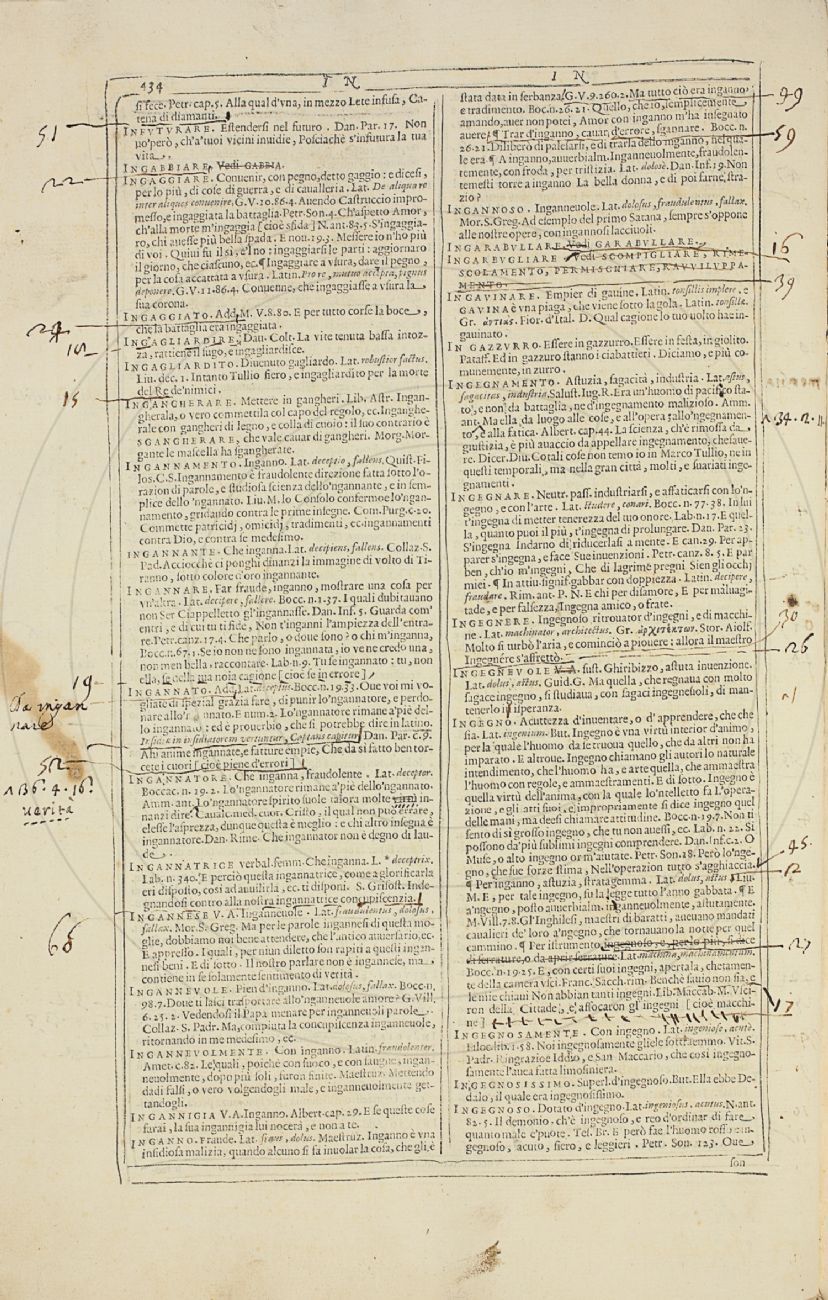 434 IN IN
si fece. Petr. cap. 5. Alla qual d'vna, in mezzo Lete infusa, Ca-
tena di diamanti.
INFVTVRARE. Estendersi nel futuro. Dan. Par. 17. Non
vo'però, ch'a'tuoi vicini inuidie, Posciachè s'infutura la tua
vita
INGABBIARE, Vedi GABBIA.
INGAGGIARE. Conuenir, con pegno, detto gaggio: e dicesi,
per lo più, di cose di guerra, e di caualleria. Lat. De aliqua re
inter aliquos conuenire. G.V. 10.86.4. Auendo Castruccio impro-
messo, e ingaggiata la battaglia. Petr. Son. 4. Ch'aspetto Amor,
ch'alla morte m'ingaggia [cioè sfida] N. ant. 83.5. S'ingaggia-
ro, chi auesse più bella spada. E nou. 19.3. Messere io n'ho più
di voi. Quiui fu il sì, e'l no: ingaggiarsi le parti: aggiornaro
il giorno, che ciascuno, ec. ¶ Ingaggiare a vsura, dare il pegno,
per la cosa accattata a vsura. Latin. Pro re, mutuo accepta, pignus
deponere. G.V. 11.86.4. Conuenne, che ingaggiasse a vsura la
sua corona.
INGAGGIATO. Add. M. V. 8.80. E per tutto corse la boce,
che la battaglia era ingaggiata.
INGAGLIARDIRE. Dau. Colt. La vite tenuta bassa intoz-
za, rattiene il sugo, e ingagliardisce.
INGAGLIARDITO. Diuenuto gagliardo. Lat. robustior factus.
Liu. dec. 1. Intanto Tullio fiero, e ingagliardito per la morte
del Re de'nimici.
INGANGHERARE. Mettere in gangheri. Lib. Astr. Ingan-
gherala, o vero commettila col capo del regolo, ec. Inganghe-
rale con gangheri di legno, e colla di cuoio: il suo contrario è
SGANGHERARE, che vale cauar di gangheri. Morg. Mor-
gante le mascella ha sgangherate.
INGANNAMENTO. Inganno. Lat. deceptio, fallens. Quist. Fi-
los. C.S. Ingannamento è fraudolente direzione fatta sotto l'o-
razion di parole, e studiosa scienza dello'ngannante, e in sem-
plice dello'ngannato. Liu. M. lo Consolo confermoe lo'ngan-
namento, gridando contra le prime insegne. Com. Purg. c. 20.
Commette patricidj, omicidj, tradimenti, ec. ingannamenti
contra Dio, e contra se medesimo.
INGANNANTE. Che inganna. Lat. decipiens, fallens. Collaz. S.
Pad. Acciocchè ci ponghi dinanzi la immagine di volto di Ti-
ranno, sotto colore d'oro ingannante.
INGANNARE. Far fraude, inganno, mostrare una cosa per
vn'altra. Lat. decipere, fallere. Bocc. n. 1.37. I quali dubitauano
non Ser Ciappelletto gl'ingannasse. Dan. Inf. 5. Guarda com'
entri, e di cui tu ti fide, Non t'inganni l'ampiezza dell'entra-
re. Petr. canz. 17.4. Che parlo, o doue sono? o chi m'inganna,
Bocc. n. 67.1. Se io non ne sono ingannata, io ve ne credo una,
non men bella, raccontare. Lab. n. 9. Tu se ingannato: tu, non
ella, se nella tua noia cagione [cioè se in errore]
INGANNATO. Add. Lat. deceptus. Bocc. n. 19.33. Oue voi mi vo-
gliate di spezial grazia fare, di punir lo'ngannatore, e perdo-
nare allo'ngannato. E num. 2. Lo'ngannatore rimane a piè del-
lo ingannato: ed è prouerbio, che si potrebbe dire in latino.
Dan. Par. c. 9.
Ahi anime ingannate, e fatture empie, Che da sì fatto ben tor-
cete i cuori [cioè piene d'errori]
INGANNATORE. Che inganna, fraudolente. Lat. deceptor.
Boccac. n. 19.2. Lo'ngannatore rimane a piè dello'ngannato.
Am. m. ant. Lo'ngannatore spirito suole talora molte virtù in-
nanzi dire. Caualc. med. cuor. Cristo, il qual non può errare,
elesse l'asprezza, dunque questa è meglio: e chi altro insegna è
ingannatore. Dan. Rime. Che ingannator non è degno di lau-
de
INGANNATRICE verbal. femm. Che inganna. L. * deceptrix.
Lab. n. 340. E perciò questa ingannatrice, come a glorificarla
eri disposto, così ad auuilirla, ec. ti disponi. S. Grisost. Inde-
gnandosi contro alla nostra ingannatrice concupiscenzia.
INGANNESE V.A. Ingannenole. Lat. fraudulentus, dolosus,
fallax. Mor. S. Greg. Ma per le parole ingannesi di questa mo-
glie, dobbiamo noi bene attendere, che l'antico auuersario, ec.
E appresso. I quali, per niun diletto son rapiti a questi ingan-
nesi beni. E di sotto. Il nostro parlare non è ingannese, ma
contiene in se solamente sentimento di verità.
INGANNEVOLE. Pien d'inganno. Lat. dolosus, fallax. Bocc. n.
98.7. Doue ti lasci trasportare allo'ngannenole amore? G. Vill.
6.25.2. Vedendosi il Papa menare per ingannenoli parole.
Collaz. S. Padr. Ma, compiuta la concupiscenza ingannenole,
ritornando in me medesimo, ec.
INGANNEVOLMENTE. Con inganno. Latin. fraudolenter.
Amet. c. 82. Le quali, poichè con fuoco, e con sangue, ingan-
neuolmente, dopo più soli, furon finite. Maestruz. Mettendo
dadi falsi, o vero volgendogli male, e ingannenolmente get-
tandogli.
INGANNIGIA V.A. Inganno. Albert. cap. 29. E se queste cose
farai, la sua ingannigia lui nocerà, e non a te.
INGANNO. Fraude. Lat. fraus, dolus. Maestruz. Inganno è vna
insidiosa malizia, quando alcuno si fa inuolar la cosa, che gli è
stata data in serbanza. G.V. 9.260.2. Ma tutto ciò era inganno
e tradimento. Bocc. n. 26.21. Quello, che io, semplicemente
amando, auer non potei, Amor con inganno m'ha insegnato
auere. ¶ Trar d'inganno, cauar d'errore, sgannare. Bocc. n.
26.21. Diliberò di palesarsi, e di trarla dello inganno, nel qua-
le era ¶ A inganno, auuerbialm. Ingannenolmente, fraudolen-
temente, con froda, per tristizia. Lat. dolosè. Dan. Inf. 19. Non
temesti torre a inganno La bella donna, e di poi farne stra-
zio?
INGANNOSO. Ingannenole. Lat. dolosus, fraudulentus, fallax.
Mor. S. Greg. Ad esemplo del primo Satana, sempre s'oppone
alle nostre opere, con ingannosi lacciuoli.
INGARABVLLARE. Vedi GARABVLLARE.
INGARBVGLIARE Vedi SCOMPIGLIARE, RIME-
SCOLAMENTO, PERMISCHIARE, RAVVILVPPA-
MENTO.
INGAVINARE. Empier di gauine. Latin. tonsillis implere. e
GAVINA è vna piaga, che viene sotto la gola. Latin. tonsilla.
Gr. Fior. d'Ital. D. Qual cagione lo tuo volto hae in-
gauinato.
IN GAZZVRRO. Essere in gazzurro. Essere in festa, in giolito.
Pataff. Ed in gazzuro stanno i ciabattieri. Diciamo, e più co-
munemente, in zurro.
INGEGNAMENTO. Astuzia, sagacità, industria. Lat. astus,
sagacitas, industria. Salust. Iug. R. Era un'huomo di pacifico sta-
to, e non da battaglia, ne d'ingegnamento malizioso. Amm.
ant. Ma ella da luogo alle cose, e all'opera: allo'ngegnamen-
to, è alla fatica. Albert. cap. 44. La scienza, ch'è rimossa da
giustizia, è più auaccio da appellare ingegnamento, che saue-
re. Dicer. Diu. Cotali cose non temo io in Marco Tullio, ne in
questi temporali, ma nella gran città, molti, e suariati inge-
gnamenti.
INGEGNARE. Neutr. pass. industriarsi, e affaticarsi con lo'n-
gegno, e con l'arte. Lat. studere, conari. Bocc. n. 77.38. In lui
t'ingegna di metter tenerezza del tuo onore. Lab. n. 17. E quel-
la, quanto puoi il più, t'ingegna di prolungare. Dan. Par. 23.
S'ingegna Indarno di riducerlasi a mente. E can. 29. Per ap-
parer s'ingegna, e face Sue inuenzioni. Petr. canz. 8.5. E par
ben, ch'io m'ingegni, Che di lagrime pregni Sien gli occhj
miei. ¶ In attiu. signif. gabbar con doppiezza. Latin. decipere,
fraudare. Rim. ant. P. N. E chi per disamore, E per maluagi-
tade, e per falsezza, Ingegna amico, o frate.
INGEGNERE. Ingegnoso ritrouator d'ingegni, e di macchi-
ne. Lat. machinator, architectus. Gr. ἀρχιτέκτων. Stor. Aiolf.
Molto si turbò l'aria, e cominciò a piouere: allora il maestro
Ingegnere s'affrettò.
INGEGNEVOLE V.A. sust. Ghiribizzo, astuta inuenzione.
Lat. dolus, astus. Guid. G. Ma quella, che regnaua con molto
sagace ingegno, si studiaua, con sagaci ingegnesoli, di man-
tenerlo in isperanza.
INGEGNO. Acutezza d'inuentare, o d'apprendere, che che
sia. Lat. ingenium. But. Ingegno è vna virtù interior d'animo,
per la quale l'huomo da se truoua quello, che da altri non ha
imparato. E altroue. Ingegno chiamano gli autori lo naturale
intendimento, che l'huomo ha, e arte quella, che ammaestra
l'huomo con regole, e ammaestramenti. E di sotto. Ingegno è
quella virtù dell'anima, con la quale lo'ntelletto fa l'opera-
zione, e gli atti suoi, e impropriamente si dice ingegno quel
delle mani, ma deesi chiamare attitudine. Bocc. n. 19.7. Non ti
sento di sì grosso ingegno, che tu non auessi, ec. Lab. n. 22. Si
possono da'più sublimi ingegni comprendere. Dan. Inf. c. 2. O
Muse, o alto ingegno or m'aiutate. Petr. Son. 18. Però lo'nge-
gno, che sue forze stima, Nell'operazion tutto s'agghiaccia.
¶ Per inganno, astuzia, stratagemma. Lat. dolus, astus. Liu.
M. E, per tale ingegno, fu la legge tutto l'anno gabbata. ¶ E
a'ngegno, posto auuerbialm. ingannenolmente, astutamente.
M. Vill. 7.8. Gl'Inghilesi, maestri di baratti, aueuano mandati
caualieri de'loro a'ngegno, che tornauano la notte per quel
cammino. ¶ Per istrumento ingegnoso, o, per lo più, si dice
di serrature, o da aprir serrature. Lat. machina, machinamentum.
Bocc. n. 19.25. E, con certi suoi ingegni, apertala, chetamen-
te della camera vscì. Franc. Sacch. rim. Benchè sauio non sia, e
le mie chiaui Non abbian tanti ingegni. Lib. Maccab. M. Vsci-
ron della Cittade, e affocaron gl'ingegni [cioè macchi-
ne]
INGEGNOSAMENTE. Con ingegno. Lat. ingeniose, acutè.
Filoc. lib. 1.58. Noi ingegnosamente gliele sottraemmo. Vit. S.
Padr. Ringrazioe Iddio, e San Maccario, che così ingegno-
samente l'auea fatta limosiniera.
INGEGNOSISSIMO. Superl. d'ingegnoso. But. Ella ebbe De-
dalo, il quale era ingegnosissimo.
INGEGNOSO. Dotato d'ingegno. Lat. ingeniosus, acutus. N. ant.
82.5. Il demonio. ch'è ingegnoso, e reo d'ordinar di fare
quanto male e'puote. Tes. Br. E però fae l'huomo rosso, in-
gegnoso, acuto, fiero, e leggieri. Petr. Son. 123. Oue
son
51
22
24
15
19
Da ingan
nare
52
136. 4. 16.
uarità
68
99
59
16
39
134. 2.
30
26
45
12
27
17